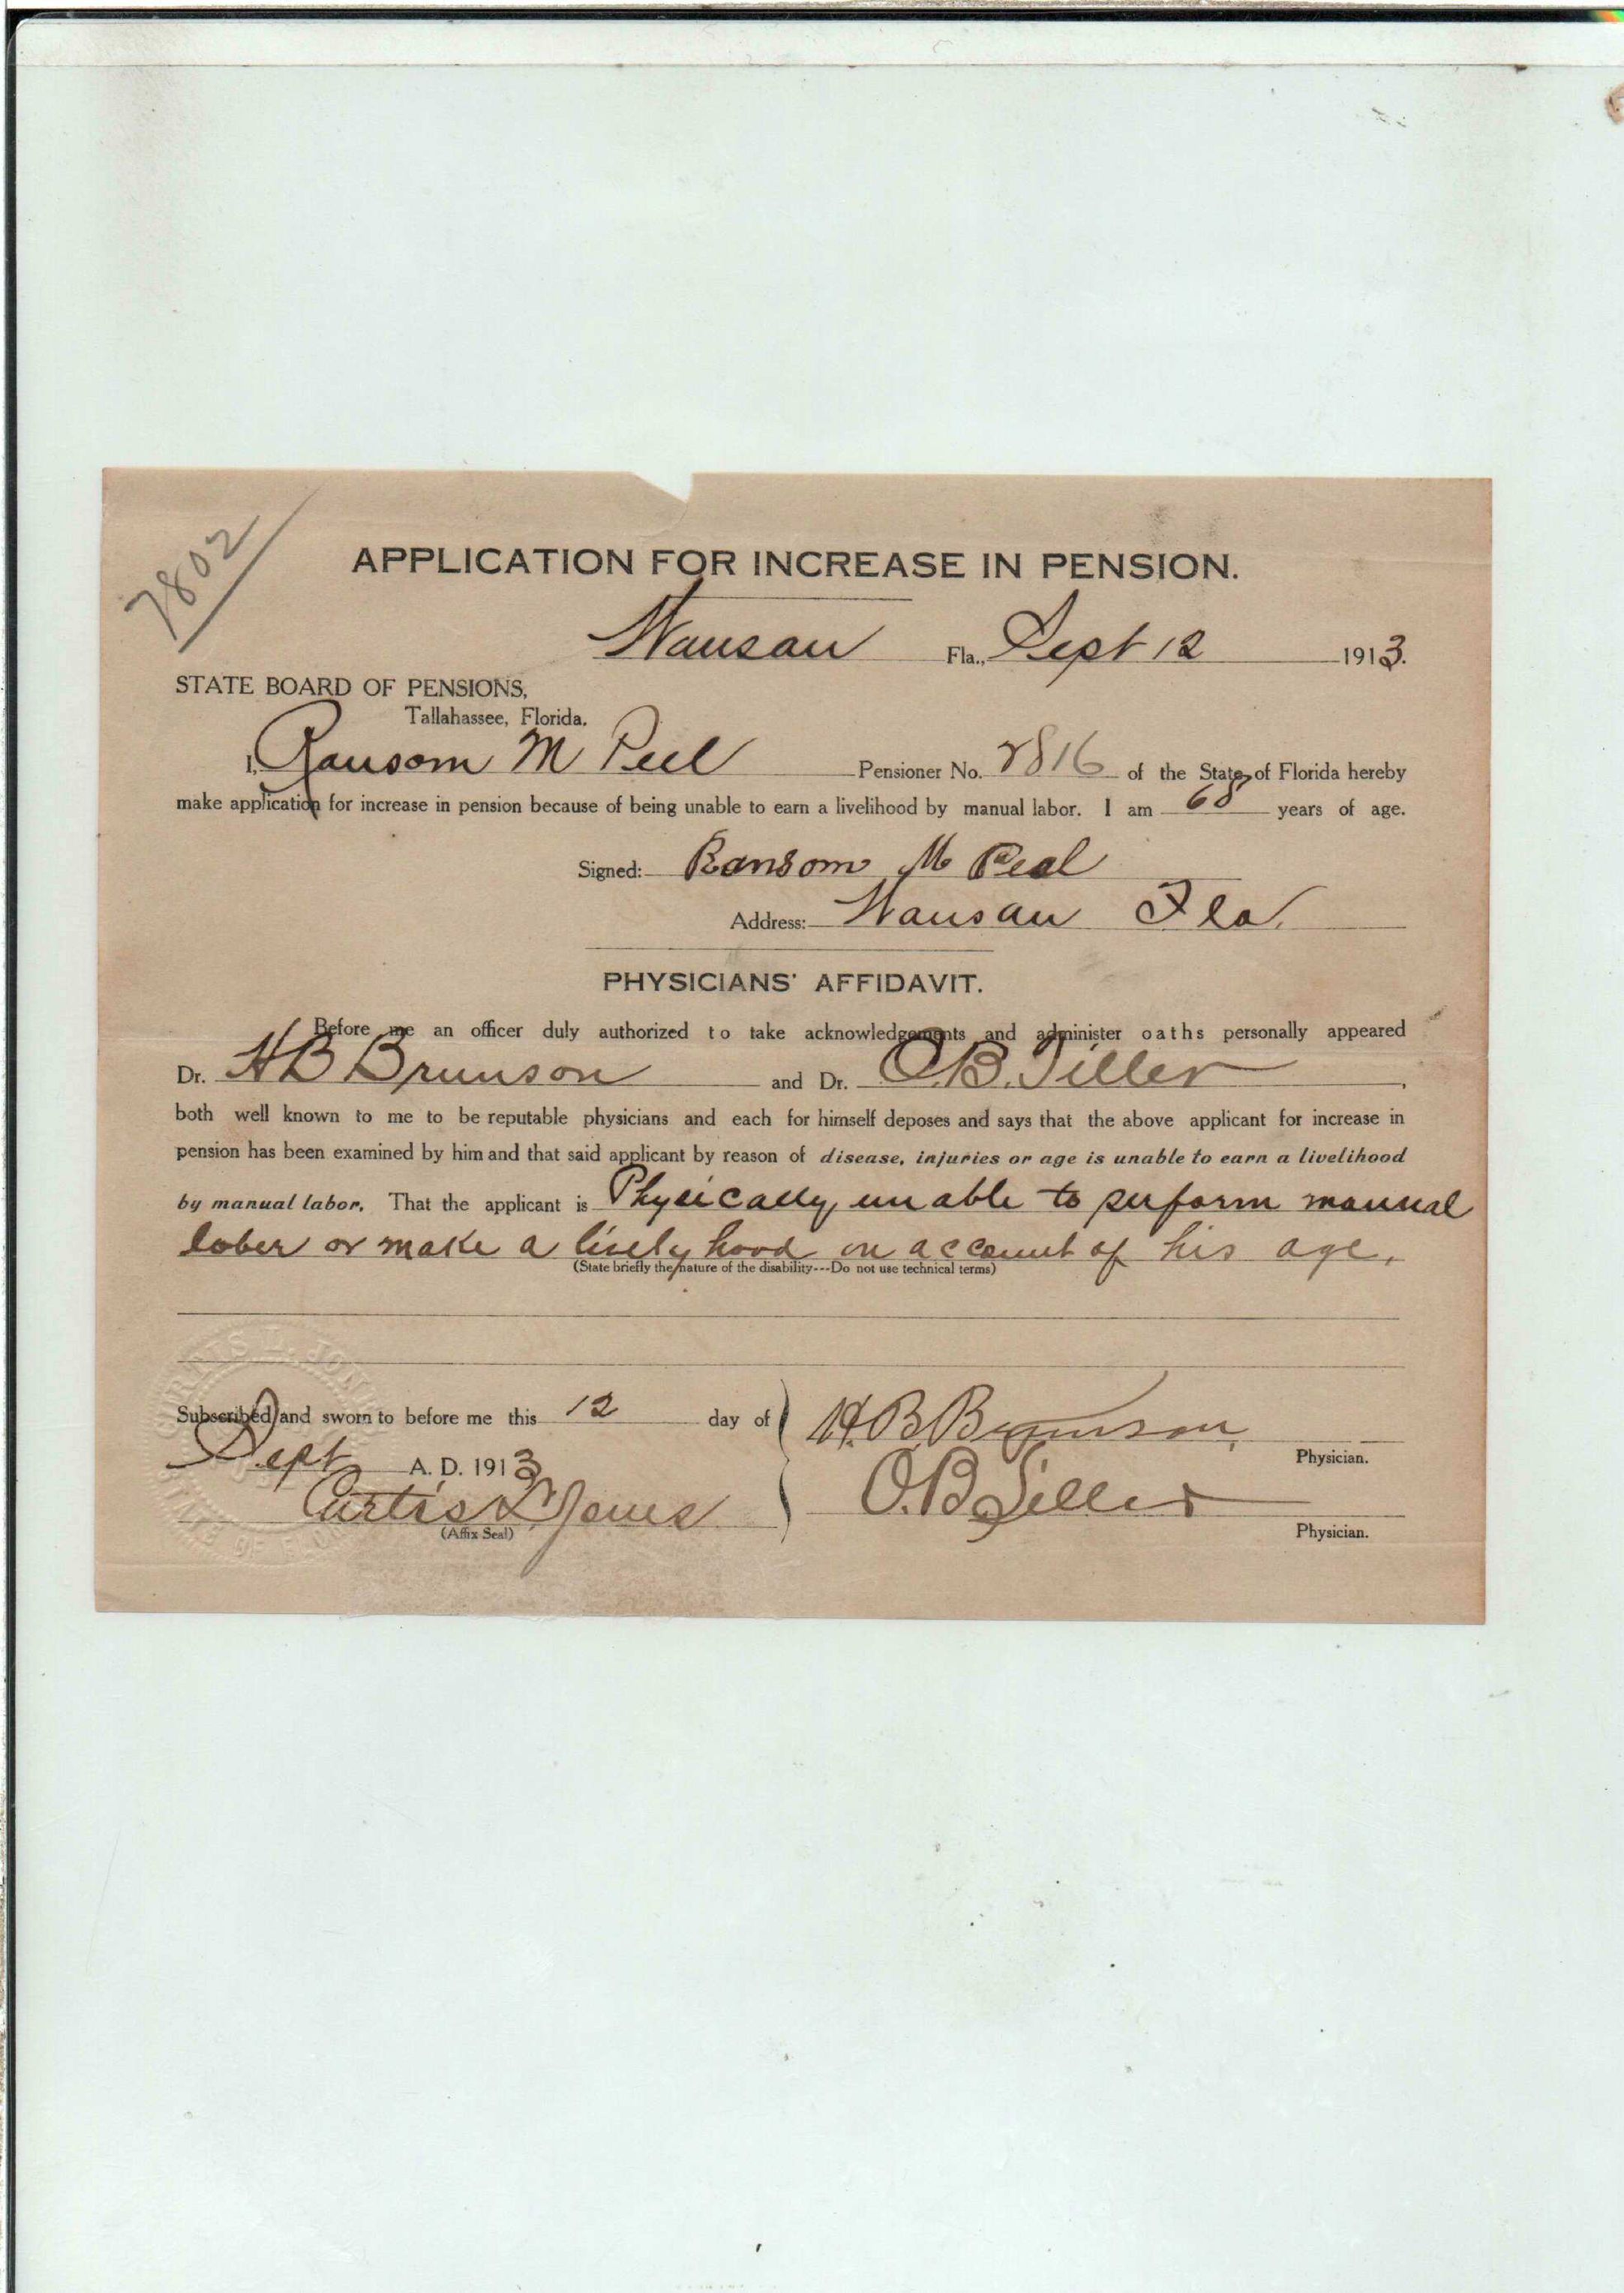 7802
APPLICATION FOR INCREASE IN PENSION.
Wausau Fla., Sept 12 1913.
STATE BOARD OF PENSIONS,
Tallahassee, Florida.
I, Ransom M Peel Pensioner No. 2816 of the State of Florida hereby
make application for increase in pension because of being unable to earn a livelihood by manual labor. I am 68 years of age.
Signed: Ransom M Peal
Address: Wausau Fla.
PHYSICIANS' AFFIDAVIT.
Before me an officer duly authorized to take acknowledgements and administer oaths personally appeared
Dr. H B Brunson and Dr. O.B. Tiller,
both well known to me to be reputable physicians and each for himself deposes and says that the above applicant for increase in
pension has been examined by him and that said applicant by reason of disease, injuries or age is unable to earn a livelihood
by manual labor. That the applicant is Physically unable to perform manual
laber or make a livelyhood on account of his age.
(State briefly the nature of the disability---Do not use technical terms)
Subscribed and sworn to before me this 12 day of
Sept A. D. 1913
Curtis L Jones
(Affix Seal)
H.B. Brunson,
Physician.
O.B. Tiller
Physician.